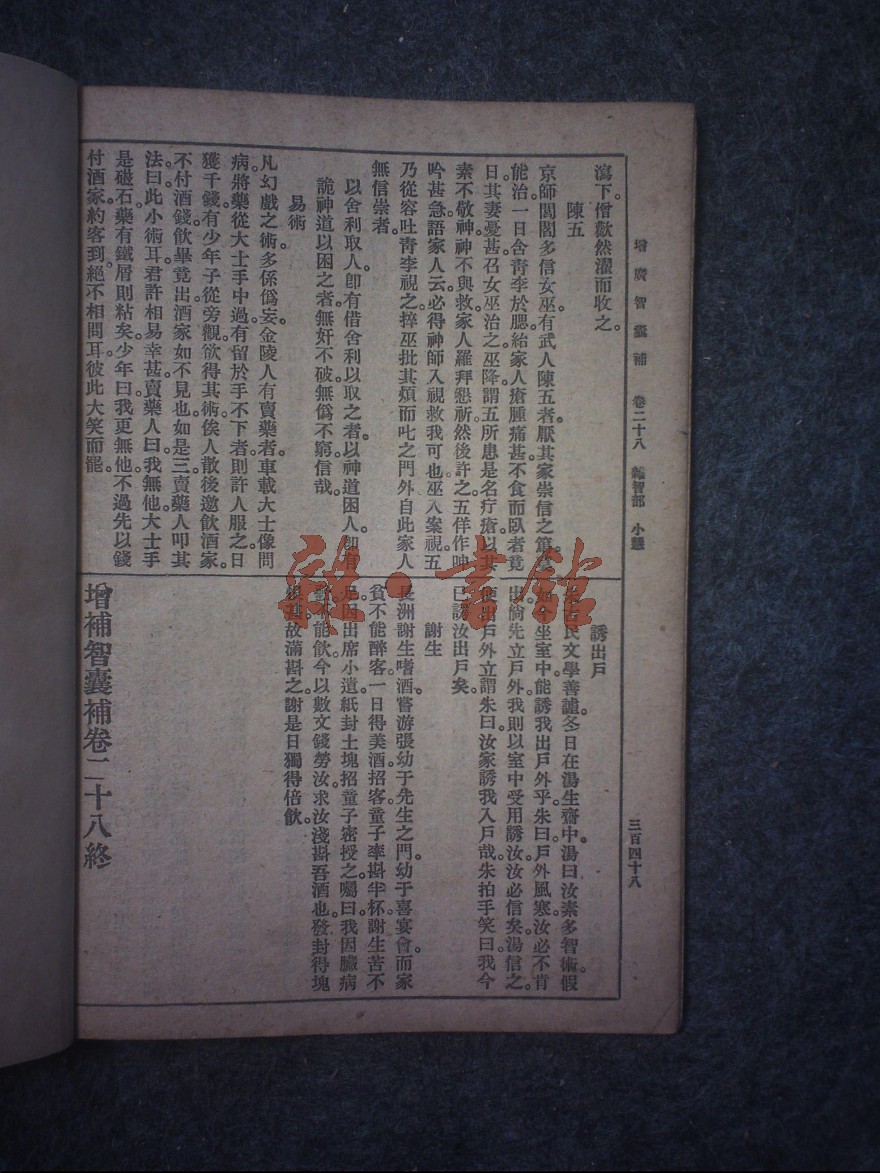 增廣智囊補 卷二十八 雜智部 小慧
三百四十八
瀉下。僧歡然濯而收之。
陳五
京師閭閻多信女巫。有武人陳五者。厭其家崇信之篤。莫
能治。一日含青李於腮。紿家人瘡腫痛甚。不食而臥者竟
日。其妻憂甚。召女巫治之。巫降。謂五所患是名疔瘡。以其
素不敬神。神不與救。家人羅拜懇祈。然後許之。五佯作呻
吟甚急。語家人云。必得神師入視救我可也。巫入案視。五
乃從容吐青李視之。捽巫批其頰。而叱之門外。自此家人
無信崇者。
以舍利取人。卽有借舍利以取之者。以神道困人。卽有
詭神道以困之者。無奸不破。無僞不窮。信哉。
易術
凡幻戲之術。多係僞妄。金陵人有賣藥者。車載大士像問
病。將藥從大士手中過。有留於手不下者。則許人服之。日
獲千錢。有少年子從旁觀。欲得其術。俟人散後。邀飲酒家。
不付酒錢。飲畢竟出。酒家如不見也。如是三。賣藥人叩其
法。曰。此小術耳。君許相易幸甚。賣藥人曰。我無他。大士手
是磁石。藥有鐵屑則粘矣。少年曰。我更無他。不過先以錢
付酒家。約客到絕不相問耳。彼此大笑而罷。
誘出戶
民文學善謔。冬日在湯生齋中。湯曰。汝素多智術。假
今坐室中。能誘我出戶外乎。朱曰。戶外風寒。汝必不肯
出。倘先立戶外。我則以室中受用誘汝。汝必信矣。湯信之。
便出戶外立。謂朱曰。汝家誘我入戶哉。朱拍手笑曰。我今
已誘汝出戶矣。
謝生
長洲謝生嗜酒。嘗游張幼于先生之門。幼于喜宴會。而家
貧不能醉客。一日得美酒招客。童子率斟半杯。謝生苦不
足。因出席小遺。紙封土塊。招童子密授之。囑曰。我因臟病
不能飲。今以數文錢勞汝。求汝淺斟吾酒也。發封得塊。
恨甚。故滿斟之。謝是日獨得倍飲。
增補智囊補卷二十八終
雜·書館